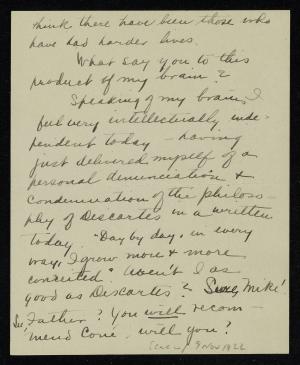 think there have been those who
have had harder lives.
What say you to this
product of my brain?
Speaking of my brain, I
feel very intellectually inde-
pendent today – having
just delivered myself of a
personal denunciation &
condemnation of the philoso-
phy of Descartes in a written
today. "Day by day, in every
way, I grow more & more
conceited." Aren't I as
good as Descartes? Sure, Mike!
See, Father? You will recom-
mend Coué, will you?
9 Nov 1922